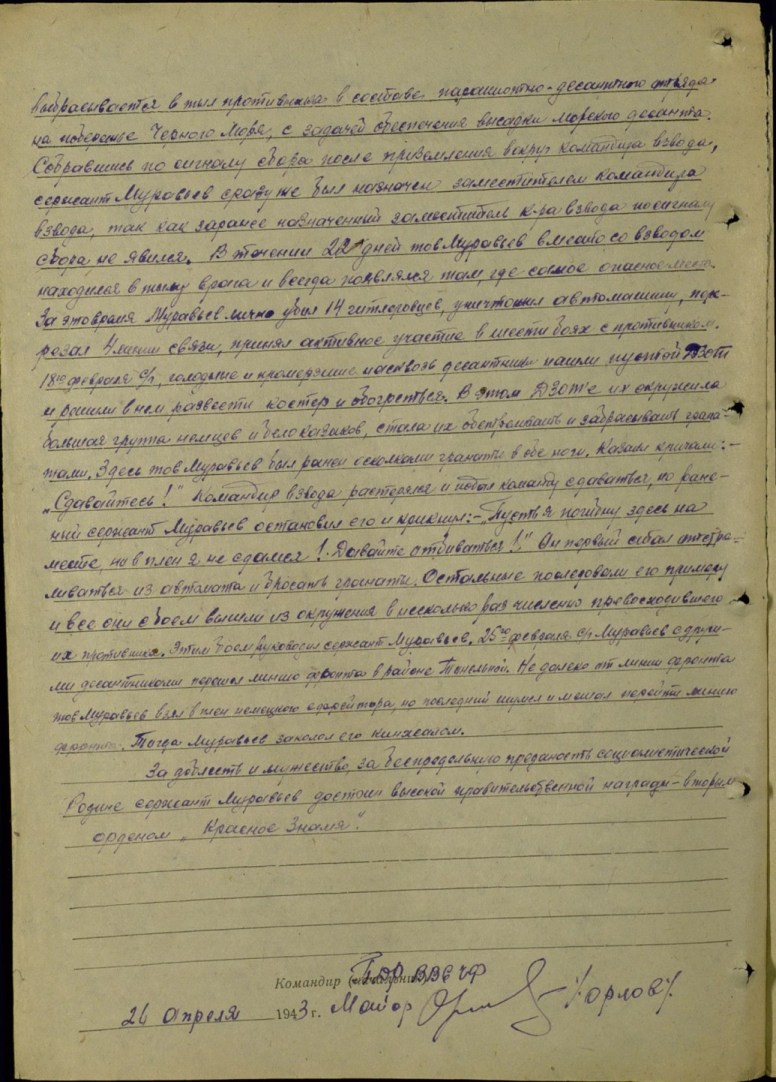 выбрасывается в тыл противника в составе парашютно-десантного отряда
на побережье Черного моря, с задачей обеспечения высадки морского десанта.
Собравшись по сигналу сбора после приземления вокруг командира взвода,
сержант Муравьев сразу же был назначен заместителем командира
взвода, так как заранее назначенный заместитель к-ра взвода по сигналу
сбора не явился. В течении 22 дней тов Муравьев вместе со взводом
находился в тылу врага и всегда появлялся там, где самое опасное место.
За это время Муравьев лично убил 14 гитлеровцев, уничтожил автомашину, пере-
резал 4 линии связи, принял активное участие в шести боях с противником.
18го февраля с/г, голодные и промерзшие насквозь десантники нашли пустой ДЗОТ
и решили в нем развести костер и обогреться. В этом ДЗОТ'е их окружила
большая группа немцев и белоказаков, стала их обстреливать и забрасывать грана-
тами. Здесь тов Муравьев был ранен осколками гранаты в обе ноги. Казаки кричали:-
„Сдавайтесь!" Командир взвода растерялся и подал команду сдаваться, но ране-
ный сержант Муравьев остановил его и крикнул:- „Пусть я погибну здесь на
месте, но в плен я не сдамся! Давайте отбиваться!" Он первый стал отстре-
ливаться из автомата и бросать гранаты. Остальные последовали его примеру
и все они с боем вышли из окружения в несколько раз численно превосходившего
их противника. Этим боем руководил сержант Муравьев. 25го февраля с/г Муравьев с други-
ми десантниками перешел линию фронта в районе Тоннельной. Не далеко от линии фронта
тов Муравьев взял в плен немецкого ефрейтора, но последний шумел и мешал перейти линию
фронта. Тогда Муравьев заколол его кинжалом.
За доблесть и мужество, за беспредельную преданость социалистической
Родине сержант Муравьев достоин высокой правительственной награды – вторым
орденом „Красное Знамя".
Командир (начальник) ВВС ЧФ
26 апреля 1943 г. Майор /Орлов/